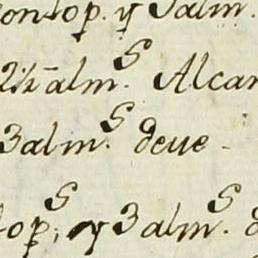 onlop. y 3 alm.
2½ alm.ˢ Alcan
3 alm.ˢ deue -
lop.ˢ; y 3 alm.ˢ